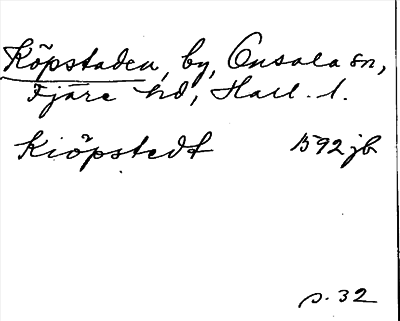 Köpstaden, by, Onsala sn,
Fjäre hd, Hall. l.
Kiöpstedt 1592 jb
s. 32